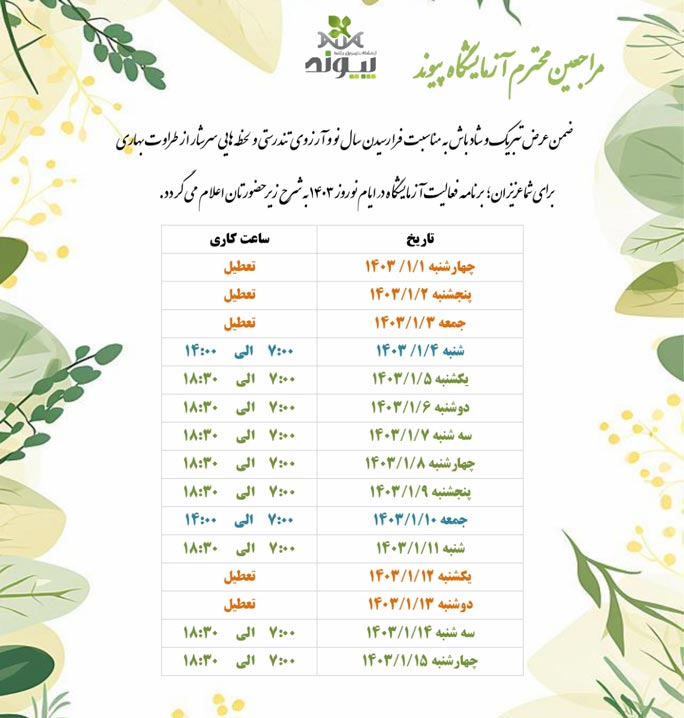 پیوند
مراجعین محترم آزمایشگاه پیوند
ضمن عرض تبریک و شادباش به مناسبت فرارسیدن سال نو و آرزوی تندرستی و لحظه‌هایی سرشار از طراوت بهاری
برای شما عزیزان؛ برنامه فعالیت آزمایشگاه در ایام نوروز ۱۴۰۳ به شرح زیر حضورتان اعلام می‌گردد.
تاریخ ساعت کاری
چهارشنبه ۱۴۰۳ /۱/۱ تعطیل
پنجشنبه ۱۴۰۳/۱/۲ تعطیل
جمعه ۱۴۰۳/۱/۳ تعطیل
شنبه ۱۴۰۳ /۱/۴ ۷:۰۰ الی ۱۴:۰۰
یکشنبه ۱۴۰۳/۱/۵ ۷:۰۰ الی ۱۸:۳۰
دوشنبه ۱۴۰۳/۱/۶ ۷:۰۰ الی ۱۸:۳۰
سه شنبه ۱۴۰۳/۱/۷ ۷:۰۰ الی ۱۸:۳۰
چهارشنبه ۱۴۰۳/۱/۸ ۷:۰۰ الی ۱۸:۳۰
پنجشنبه ۱۴۰۳/۱/۹ ۷:۰۰ الی ۱۸:۳۰
جمعه ۱۴۰۳/۱/۱۰ ۷:۰۰ الی ۱۴:۰۰
شنبه ۱۴۰۳/۱/۱۱ ۷:۰۰ الی ۱۸:۳۰
یکشنبه ۱۴۰۳/۱/۱۲ تعطیل
دوشنبه ۱۴۰۳/۱/۱۳ تعطیل
سه شنبه ۱۴۰۳/۱/۱۴ ۷:۰۰ الی ۱۸:۳۰
چهارشنبه ۱۴۰۳/۱/۱۵ ۷:۰۰ الی ۱۸:۳۰